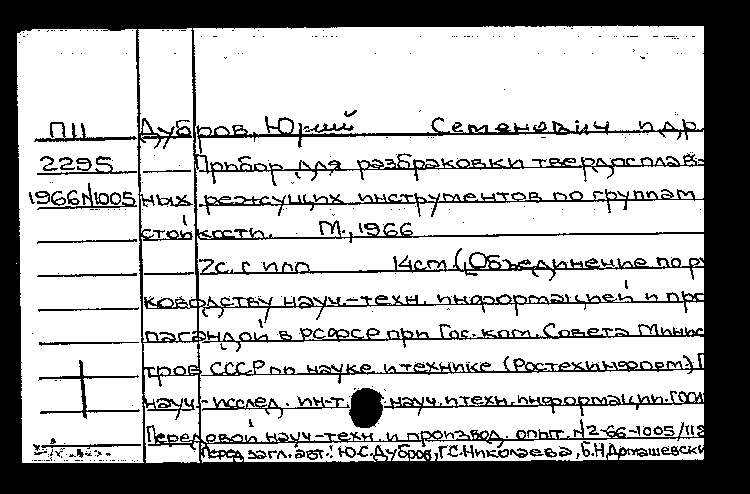 П11 Дубров, Юрий Семенович и др
2295 Прибор для разбраковки твердосплав-
1966№1005 ных режущих инструментов по группам
стойкости. М., 1966
2с. с илл 14см (Объединение по ру
ководству науч.-техн. информацией и про
пагандой в РСФСР при Гос. ком. Совета Минис
тров СССР по науке и технике (Ростехинформ)
науч.-исслед. ин-т науч. и техн. информации.
Передовой науч.-техн. и производ. опыт. №2-66-1005/118
Перед загл. авт.: Ю.С.Дубров, Г.С.Николаева, Б.Н.Доташевски